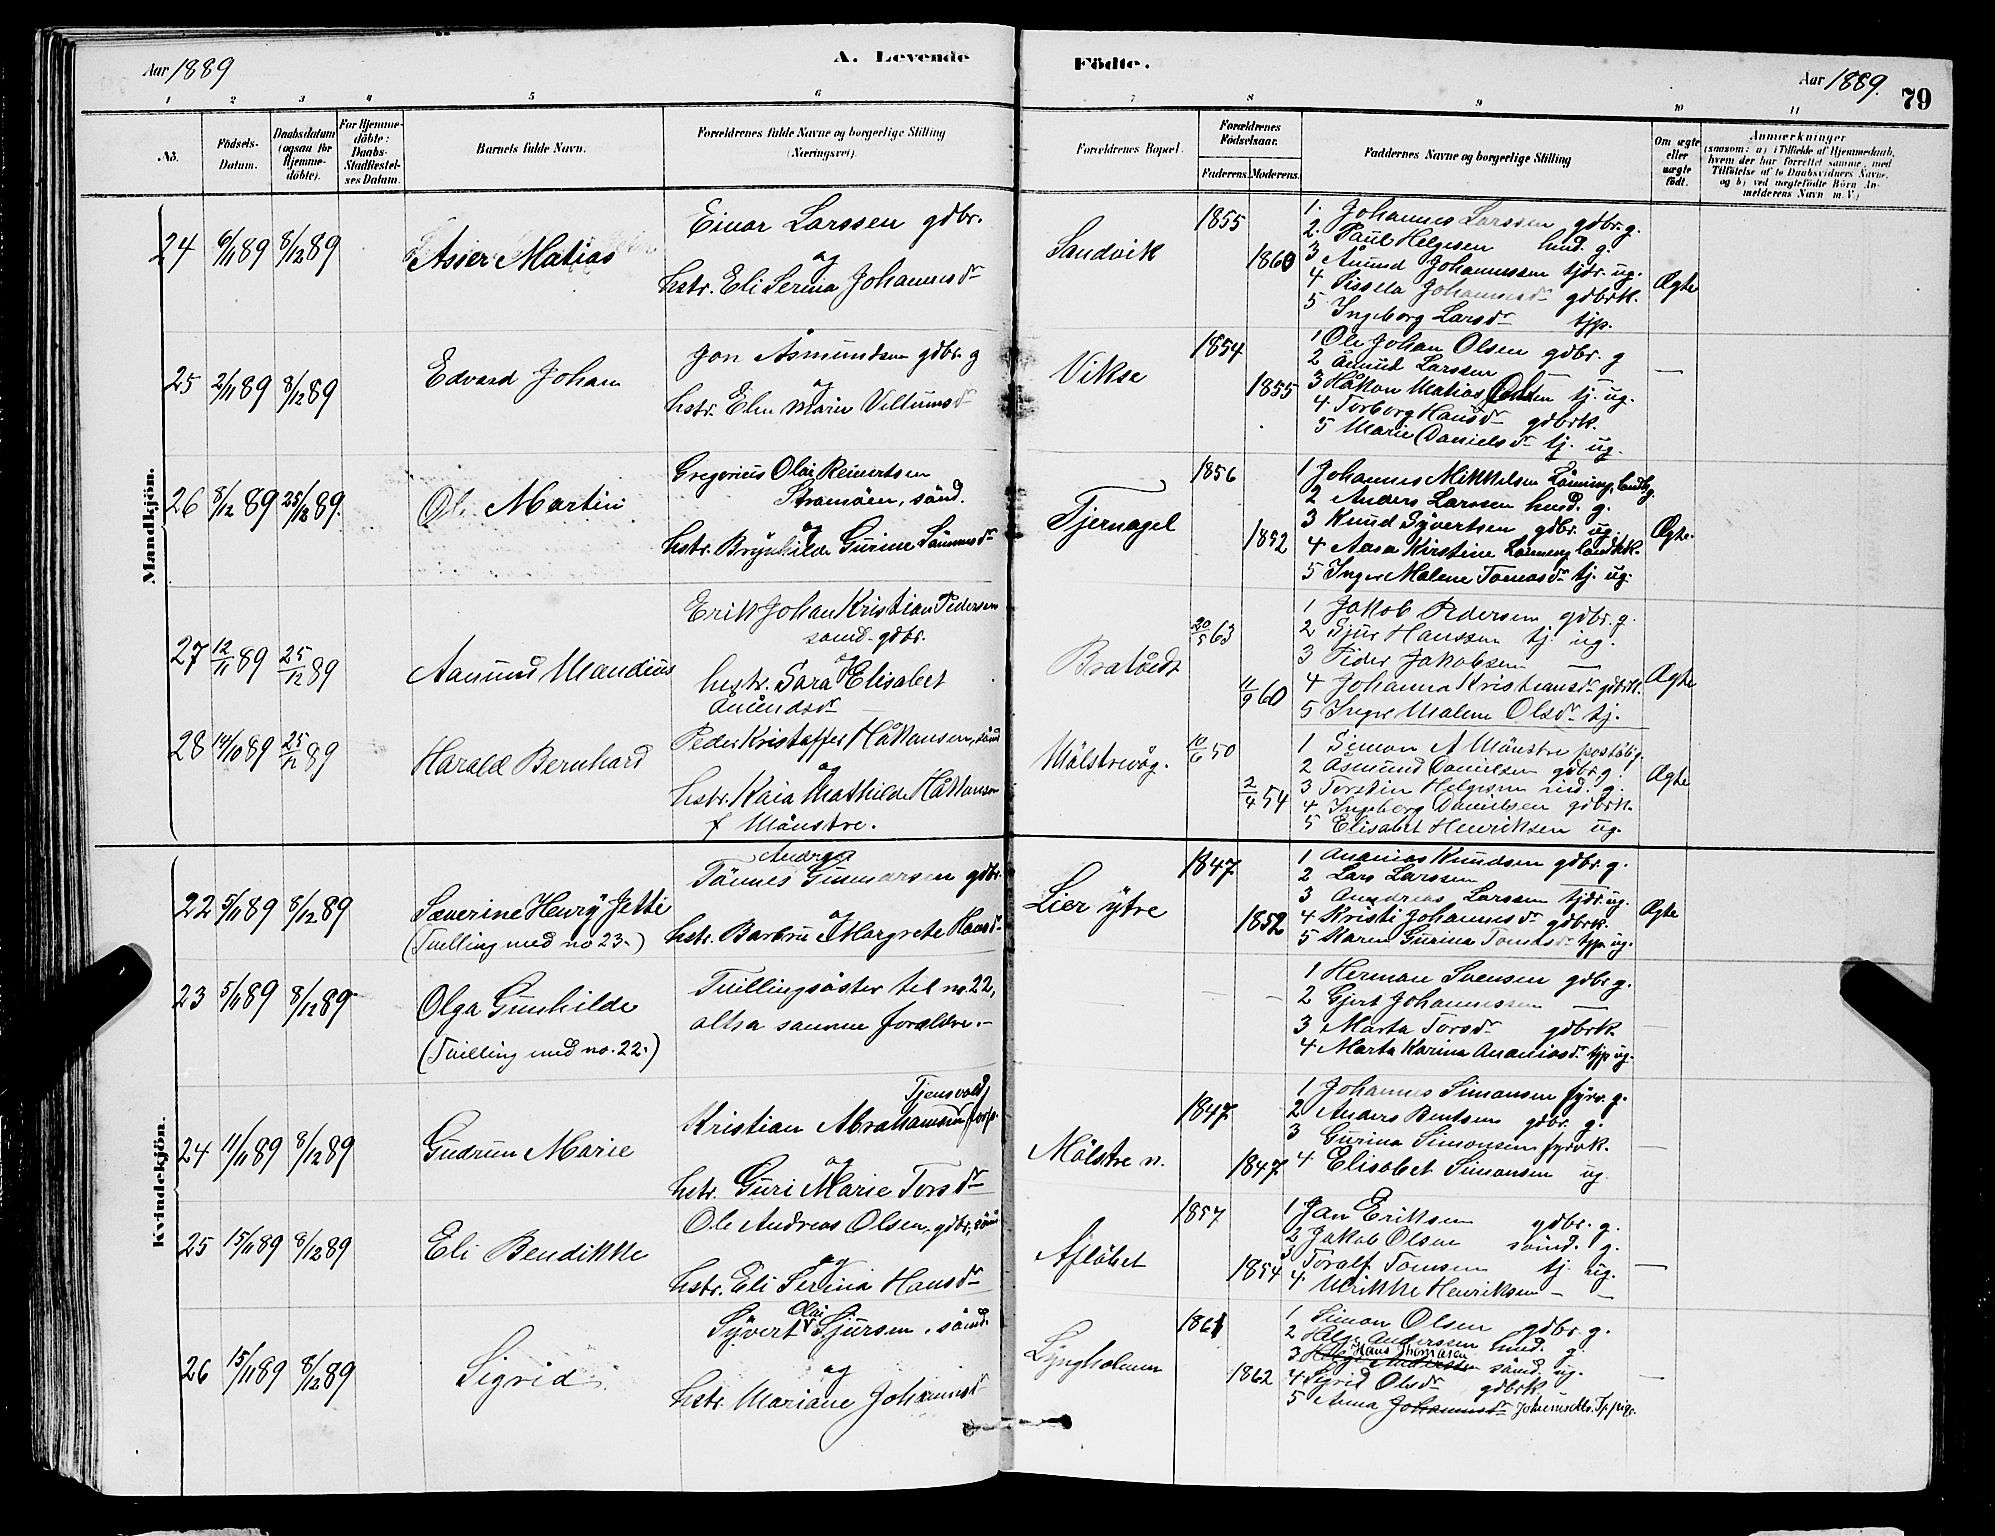 Aar 1889
A. Levende
Födte.
Aar 1889.
79
1 2 3 4 5 6 7 8 9 10 11
No.
Födsels-Datum.
Daabsdatum (ogsaa for Hjemmedöbte).
For Hjemmedöbte: Daabs-Stadfæstelses Datum.
Barnets fulde Navn.
Forældrenes fulde Navne og borgerlige Stilling (Næringsvei).
Forældrenes Bopæl.
Forældrenes Födselsaar.
Faderens.
Moderens.
Faddernes Navne og borgerlige Stilling
Om ægte eller uægte födt.
Anmærkninger
(saasom: a) i Tilfælde af Hjemmedaab, hvem der har forrettet samme, med Tilföielse af to Daabsvidners Navne, og b) ved uægtefödte Börn Anmelderens Navn m. V.)
Mandkjön.
24 6/11 89 8/12 89 Asser Matias
Einar Larssen gdbr.
og
hstr. Eli Serina Johannesdr
Sandvik
1855
1860
1. Johannes Larssen gdbr. g.
2. Paul Helgesen hmd. g.
3 Åmund Johannessen tjdr. ug.
4 Sissela Johannesdr gdbrk.
5 Ingeborg Larsdr tjp.
Ægte
25 2/11 89 8/12 89 Edvard Johan
Jon Åsmundsen gdbr. g
og
hstr. Elen Marie Veltumsdr
Vikse
1854
1855
1 Ole Johan Olsen gdbr. g
2 Åmund Larssen —
3 Håkon Matias Olsen tj. ug.
4 Torborg Hansdr gdbrk.
5 Marie Danielsdr tj. ug.
—
26 8/12 89 25/12 89. Ole Martin
Gregorius Olai Reinertsen
Stramoen, sömd.
og
hstr. Brynhilde Gurine Larsdr
Tjernagel
1856
1852
1 Johannes Mikkelsen Lönning, landh. g.
2 Anders Larssen husd. g.
3 Knud Syvertsen gdbr. ug.
4 Aasa Kirstine Lönning landhk.
5 Inger Malene Tomasdr tj. ug.
Ægte.
27 12/11 89 25/12 89 Aamund Mandius
Erik Johan Kristian Pedersen
sömd. gdbr.
og
hustr. Sara Elisabet
Åmundsdr
Bratvedt
20/5 63
11/9 60
1 Jakob Pedersen gdbr. g.
2 Sjur Hanssen tj. ug.
3 Peder Jakobsen —
4 Johanna Kristiansdr gdbrk.
5 Inger Malene Olsdr tj.
Ægte
28 14/10 89 25/12 89 Harald Bernhard
Peder Kristoffer Håkonsen, sömd
og
hstr. Kaia Mathilde Håkonsen
f Mönstre.
Mölstrevåg.
10/6 50
2/4 54
1 Simon A Mönstre postålg.
2 Åsmund Danielsen gdbr. g.
3 Torstein Helgesen ind. g.
4 Ingeborg Danielsen gdbrk.
5 Elisabet Henriksen ug.
Ægte
Kvindekjön.
22 5/11 89 8/12 89 Severine Henry Jetti
(Tvilling med no 23.)
Andrea
Tönnes Gunnarsen gdbr.
og
hstr. Barbru Margrete Hansdr
Lier ytre
1847
1852
1 Ananias Knudsen gdbr. g.
2 Lars Larssen —
3 Andreas Larssen tjdr. ug.
4 Kristi Johannesdr gdbrk.
5 Karen Gurina Tomasdr tjp. ug.
Ægte
23 5/11 89 8/12 89 Olga Gunhilde
(Tvilling med no. 22.)
Tvillingsöster til no. 22,
altsa samme forældre. —
— — —
1 Herman Svensen gdbr g.
2 Gjert Johannessen —
3 Marta Torsdr gdbrk.
4 Marta Karina Ananiasdr tjp ug.
—
24 11/11 89 8/12 89 Gudrun Marie
Tjensvold,
Kristian Abrahamsen forp.
og
hstr. Guri Marie Torsdr
Mölstre n.
1847
1847
1 Johannes Simonsen fyrv. g.
2 Anders Bentsen gdbr. g.
3 Gurina Simonsen fyrvk.
4 Elisabet Simonsen ug
—
25 15/11 89 8/12 89 Eli Bendikke
Ole Andreas Olsen, gdbr, sömd
og
hstr. Eli Serina Hansdr
Aflöbet
1857
1854
1 Jan Eriksen gdbr. g.
2 Jakob Olsen sömd. g.
3 Toralf Tomsen tj. ug.
4 Ulrikke Henriksen — —
—
26 15/11 89 8/12 89 Sigrid
Olai
Syvert Sjursen, sömd.
og
hstr. Mariane Johannesdr
Lyngholmen
1861
1862
1 Simon Olsen gdbr. g.
2 Helge Anderssen hmd. g.
3 Helge Anderssen Hans Thomasen sömd. ug.
4 Sigrid Olsdr gdbrk.
5 Anna Johannesdr
—